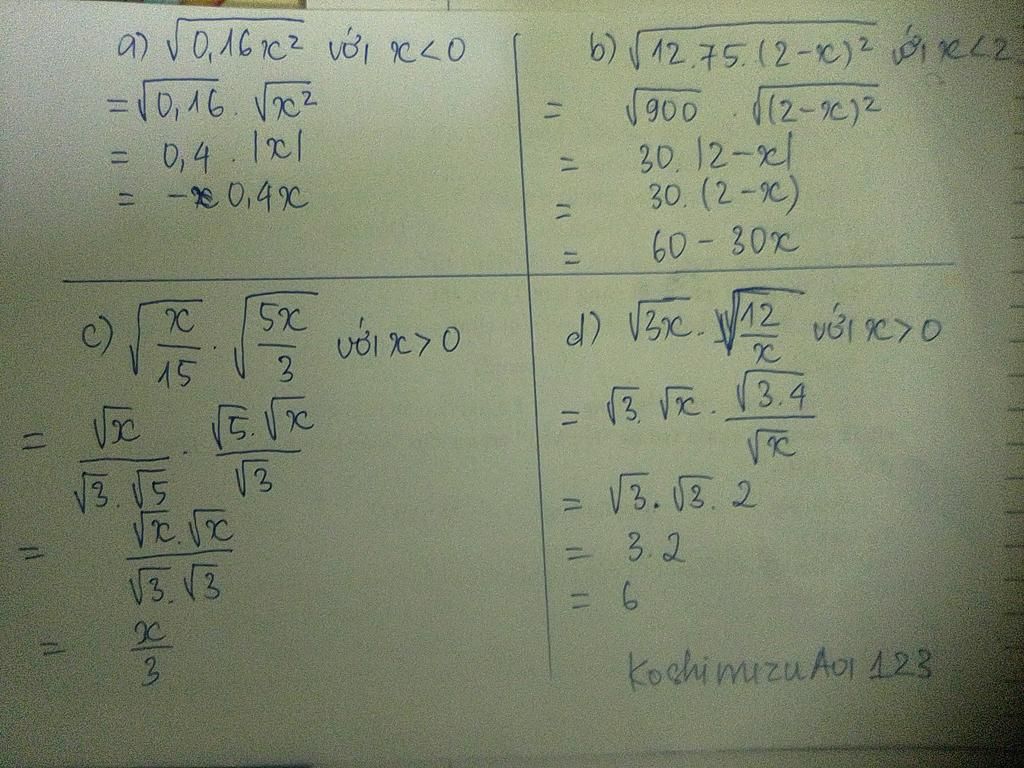 a) √0,16x² với x<0
= √0,16 . √x²
= 0,4 . |x|
= -0,4x
b) √12.75.(2-x)² với x<2
= √900 . √(2-x)²
= 30. |2-x|
= 30. (2-x)
= 60 - 30x
c) √x/15 . √5x/3 với x>0
= √x/√3.√5 . √5.√x/√3
= √x.√x/√3.√3
= x/3
d) √3x . √12/x với x>0
= √3. √x . √3.4/√x
= √3. √3. 2
= 3.2
= 6
KoshimizuAoi 123